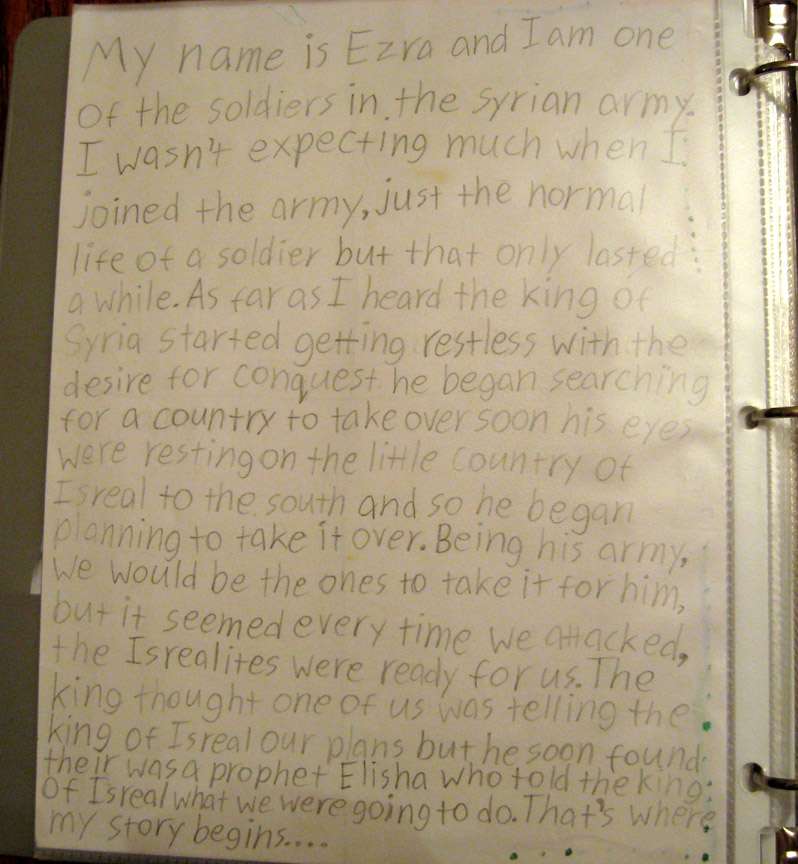 My name is Ezra and I am one
of the soldiers in the syrian army.
I wasn't expecting much when I
joined the army, just the normal
life of a soldier but that only lasted
a while. As far as I heard the king of
Syria started getting restless with the
desire for conquest he began searching
for a country to take over soon his eyes
were resting on the little country of
Isreal to the south and so he began
planning to take it over. Being his army,
we would be the ones to take it for him,
but it seemed every time we attacked,
the Isrealites were ready for us. The
king thought one of us was telling the
king of Isreal our plans but he soon found
their was a prophet Elisha who told the king
of Isreal what we were going to do. That's where
my story begins....